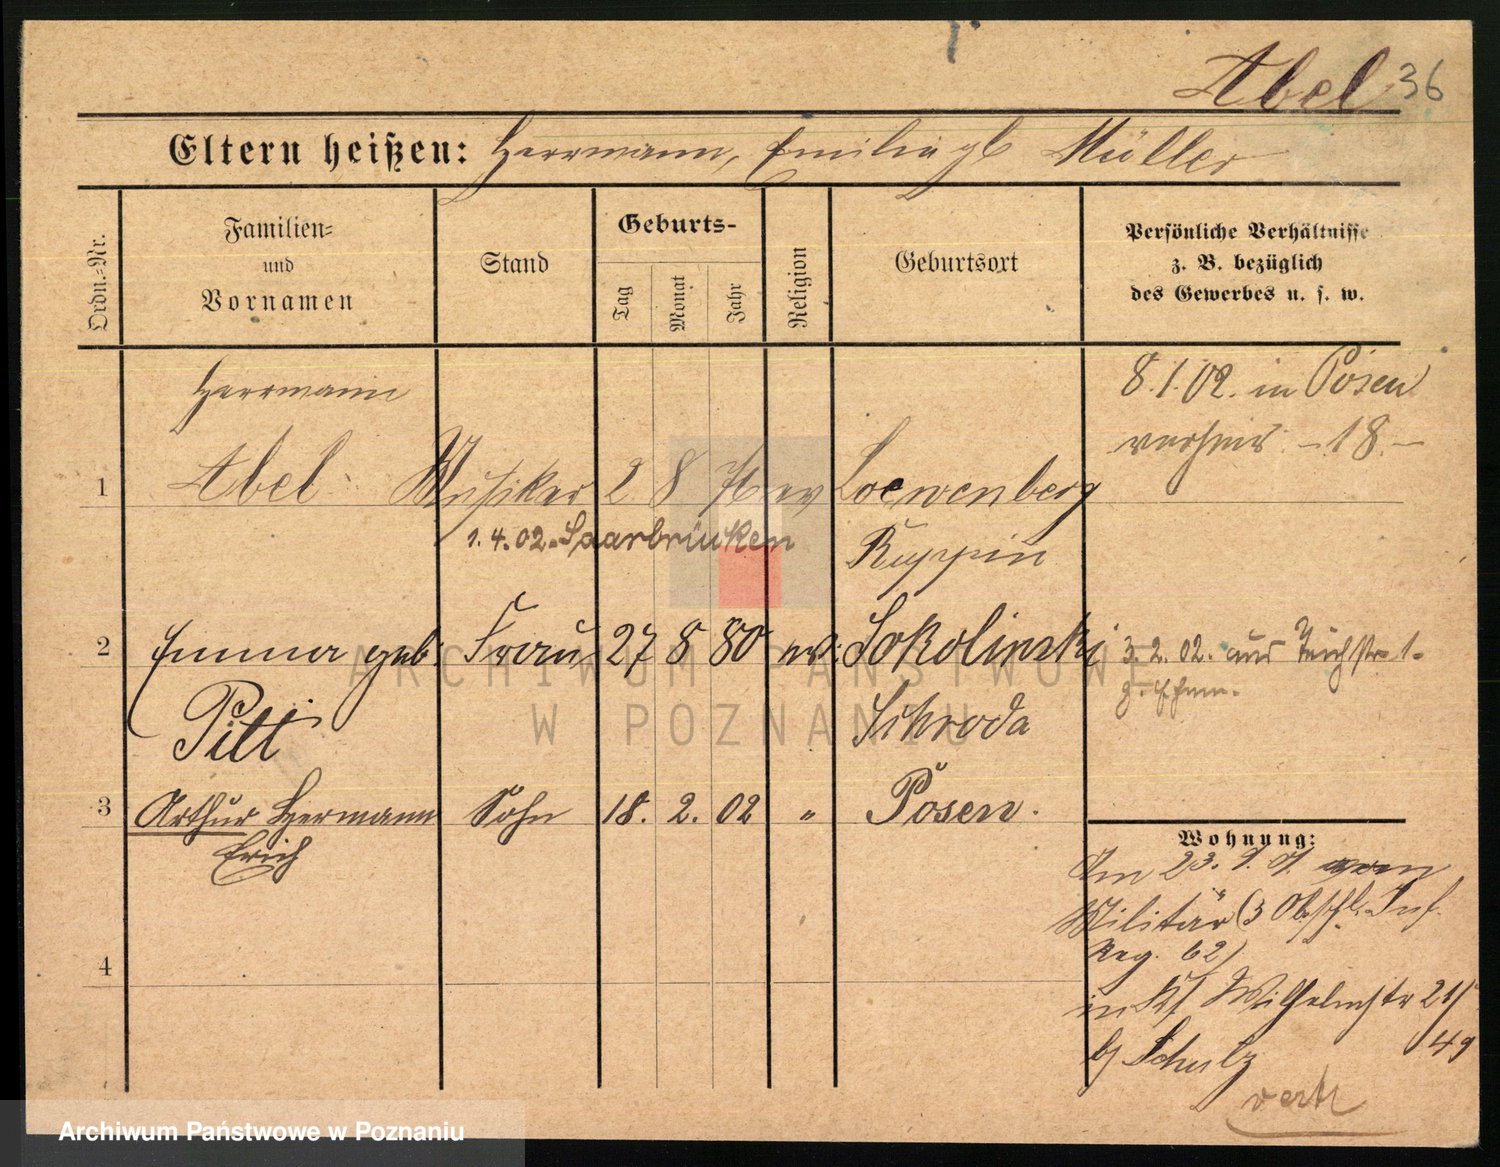 Abel 36
Eltern heißen: Herrmann, Emilie gb Müller
Ordn.=Nr.
Familien=
und
Vornamen
Stand
Geburts-
Tag
Monat
Jahr
Religion
Geburtsort
Persönliche Verhältnisse
z. B. bezüglich
des Gewerbes u. s. w.
Herrmann
8.1.02. in Posen
verheir. -18.-
1 Abel Musiker 2 8 76 ev Loewenberg
1.4.02. Saarbrücken
Ruppin
2 Emma geb. Frau 27 8 80 ev. Sokolinski 3.2.02. aus
Pitt
Schroda
3 Arthur Hermann Sohn 18. 2. 02 " Posen.
Erich
Wohnung:
Am 23. 9. 01. vom
Militär (3 Obschl. Inf.
Reg. 62)
in Wilhelmstr 21
b/ Schulz 49
4
verh
ARCHIWUM PAŃSTWOWE
W POZNANIU
Archiwum Państwowe w Poznaniu